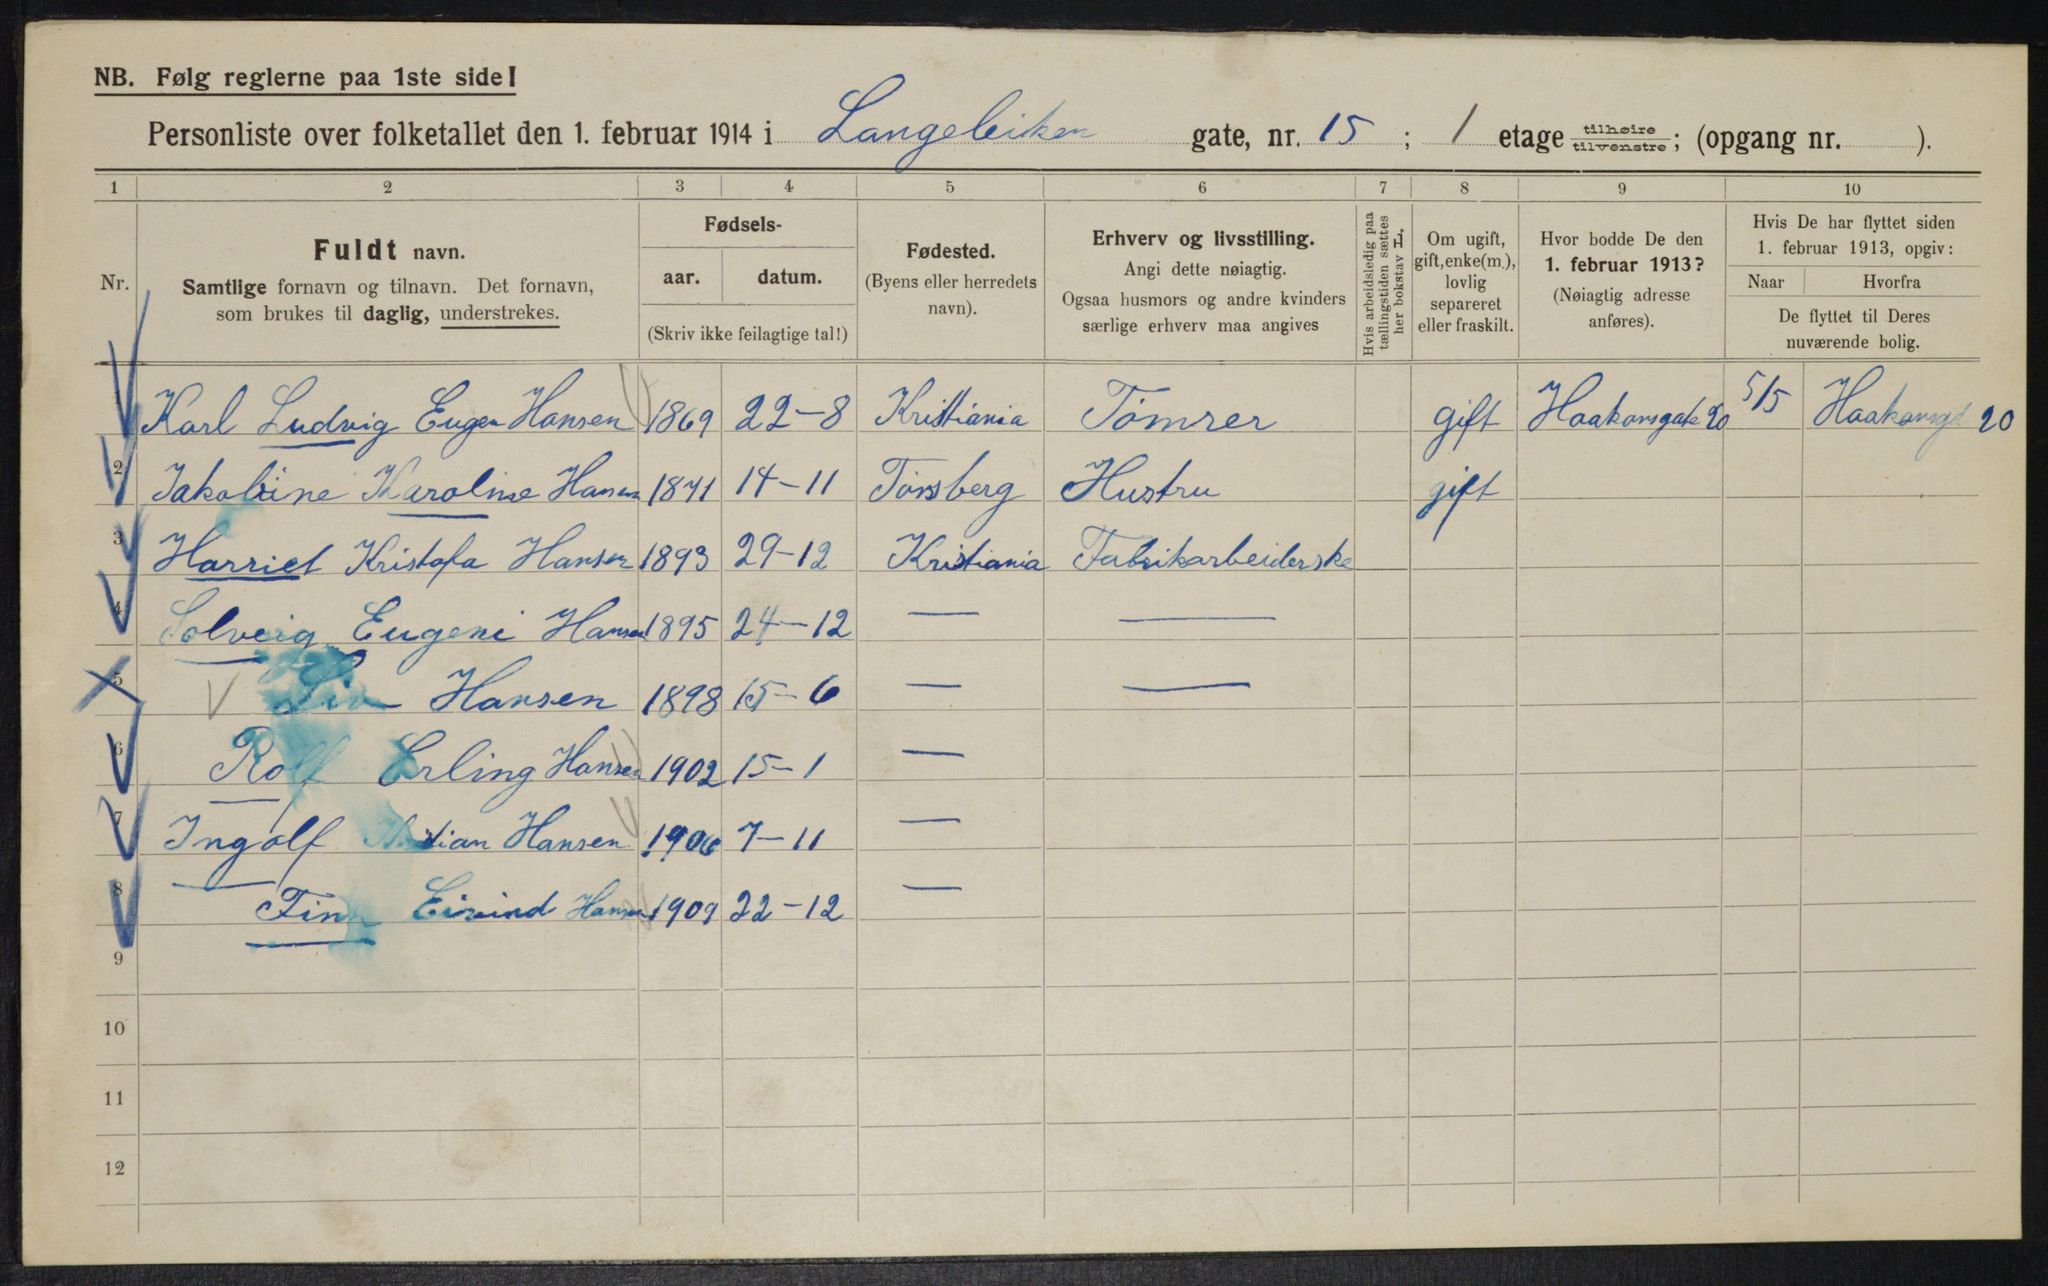 NB. Følg reglerne paa 1ste side!
Personliste over folketallet den 1. februar 1914 i Langeleiken gate, nr. 15 ; 1 etage tilhøire tilvenstre; (opgang nr. ).
1 2 3 4 5 6 7 8 9 10
Nr.
Fuldt navn.
Samtlige fornavn og tilnavn. Det fornavn,
som brukes til daglig, understrekes.
Fødsels-
aar. datum.
(Skriv ikke feilagtige tal!)
Fødested.
(Byens eller herredets
navn).
Erhverv og livsstilling.
Angi dette nøiagtig.
Ogsaa husmors og andre kvinders
særlige erhverv maa angives
Hvis arbeidsledig paa
tællingstiden sættes
her bokstav L.
Om ugift,
gift, enke(m.),
lovlig
separeret
eller fraskilt.
Hvor bodde De den
1. februar 1913?
(Nøiagtig adresse
anføres).
Hvis De har flyttet siden
1. februar 1913, opgiv:
Naar Hvorfra
De flyttet til Deres
nuværende bolig.
1 Karl Ludvig Eugen Hansen 1869 22-8 Kristiania Tømrer gift Haakonsgate 20 5/5 Haakonsgt 20
2 Jakobine Karoline Hansen 1871 14-11 Tønsberg Hustru gift
3 Harriet Kristofa Hansen 1893 29-12 Kristiania Fabrikarbeiderske
4 Solveig Eugeni Hansen 1895 24-12 — —
5 Liv Hansen 1898 15-6 — —
6 Rolf Erling Hansen 1902 15-1 —
7 Ingolf Hansen 1906 7-11 —
8 Finn Eivind Hansen 1909 22-12 —
9
10
11
12